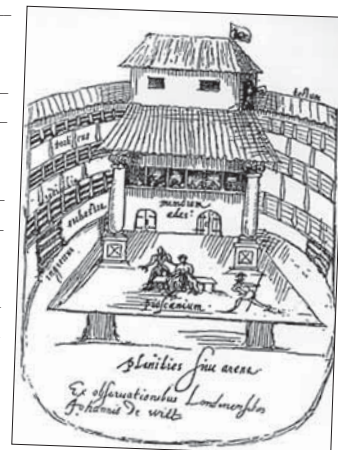 tectum
porticus
sedilia
orchestra
mimorum
ædes
ingressus
proscænium
planities siue arena
Ex obseruationibus Londinensibus
Johannis de witt